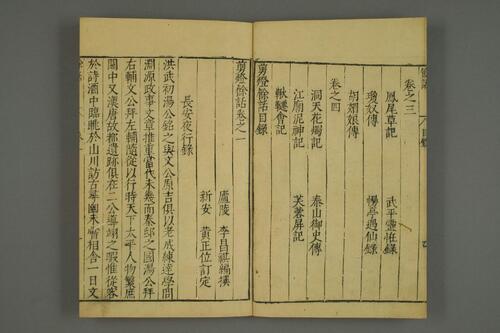 卷之三
鳳尾草記　武平靈怪錄
瓊奴傳　幔亭遇仙錄
胡媚娘傳
卷之四
洞天花燭記　泰山御史傳
江廟泥神記　芙蓉屏記
鞦韆會記
剪燈餘話目錄
剪燈餘話卷之一
廬陵　李昌祺編撰
新安　黃正位訂定
長安夜行錄
洪武初湯公銘之與文公原吉俱以老成練達學問
淵源政事文章推重當代未幾而秦邸之國湯公拜
右輔文公拜左輔隨從以行時天下太平人物繁庶
關中又漢唐故都遺跡俱在二公導翊之暇惟從容
於詩酒中臨眺於山川訪古尋幽未嘗相舍一日文